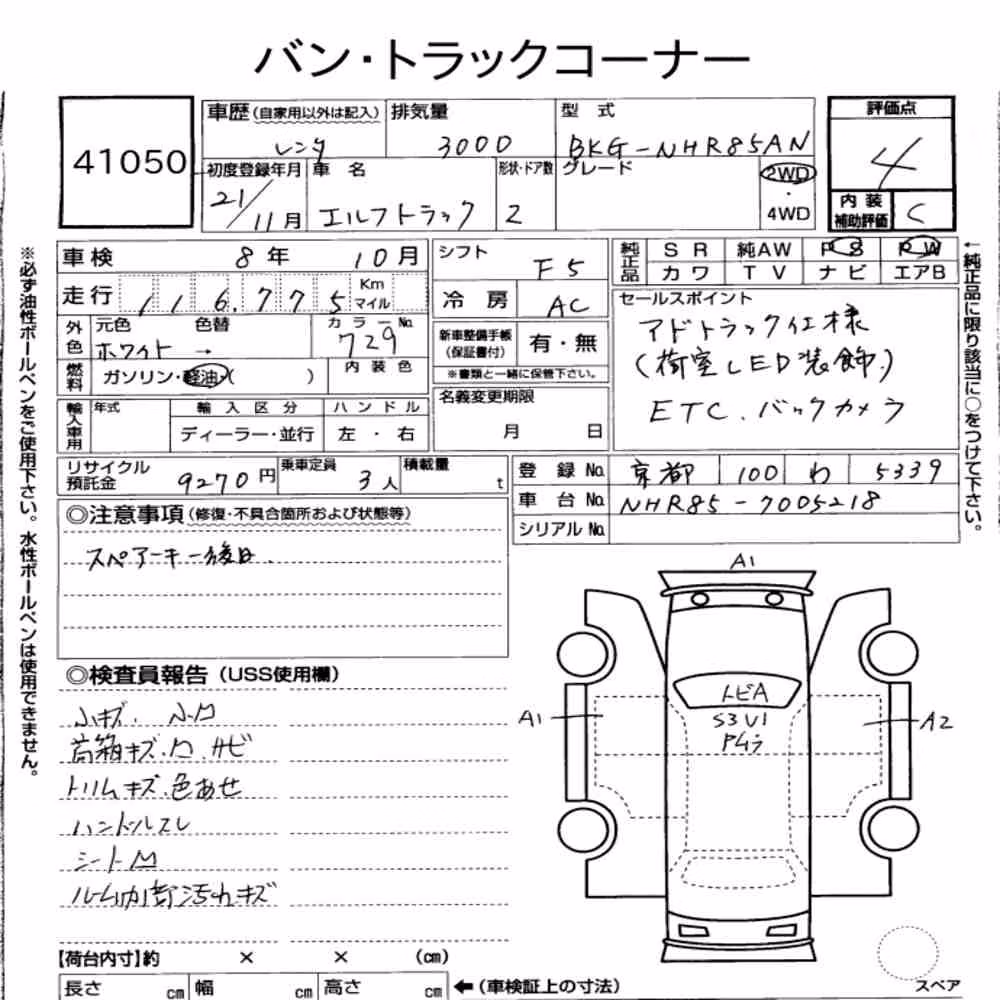 バン・トラックコーナー
41050
車歴(自家用以外は記入) 排気量 型 式 評価点
レンタ 3000 BKG-NHR85AN 4
初度登録年月 車 名 形状・ドア数 グレード 2WD・4WD 内装補助評価 C
21/11月 エルフトラック 2
車検 8年 10月 シフト F5 純正品 SR 純AW PS PW
カワ TV ナビ エアB
走行 116,775 Km マイル 冷 房 AC
外色 元色 色替 カラーNo. 729
ホワイト →
新車整備手帳(保証書付) 有・無
※書類と一緒に保管下さい。
燃料 ガソリン・軽油・( ) 内 装 色
セールスポイント
アドトラック仕様
(荷室LED装飾)
ETC.バックカメラ
輸入車用 年式 輸 入 区 分 ハ ン ド ル
ディーラー・並行 左 ・ 右
名義変更期限
月 日
リサイクル預託金 9270円 乗車定員 3人 積載量 t
登 録 No. 京都 100 わ 5339
車 台 No. NHR85-7005218
シリアル No.
◎注意事項(修復・不具合箇所および状態等)
スペアーキー後日.
◎検査員報告(USS使用欄)
小キズ. 小凹
荷箱キズ.凹.サビ
トリムキズ.色あせ
ハンドルスレ
シート凹
ルーム内荷汚れキズ
A1
トビA
S3 U1
A1
A2
【荷台内寸】約 × × (cm)
長さ cm 幅 cm 高さ cm ←(車検証上の寸法)
スペア
※必ず油性ボールペンをご使用下さい。水性ボールペンは使用できません。
←純正品に限り該当に○をつけて下さい。